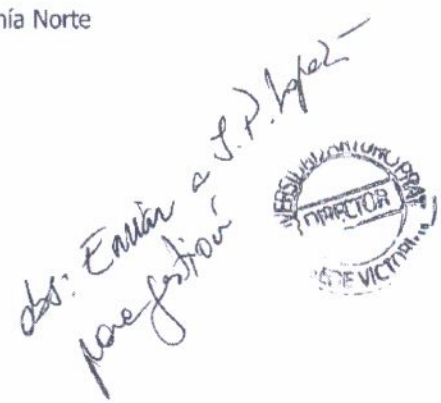 nía Norte
obs: Enviar a J. P. López
para gestión
DIRECTOR
DE VICTORI